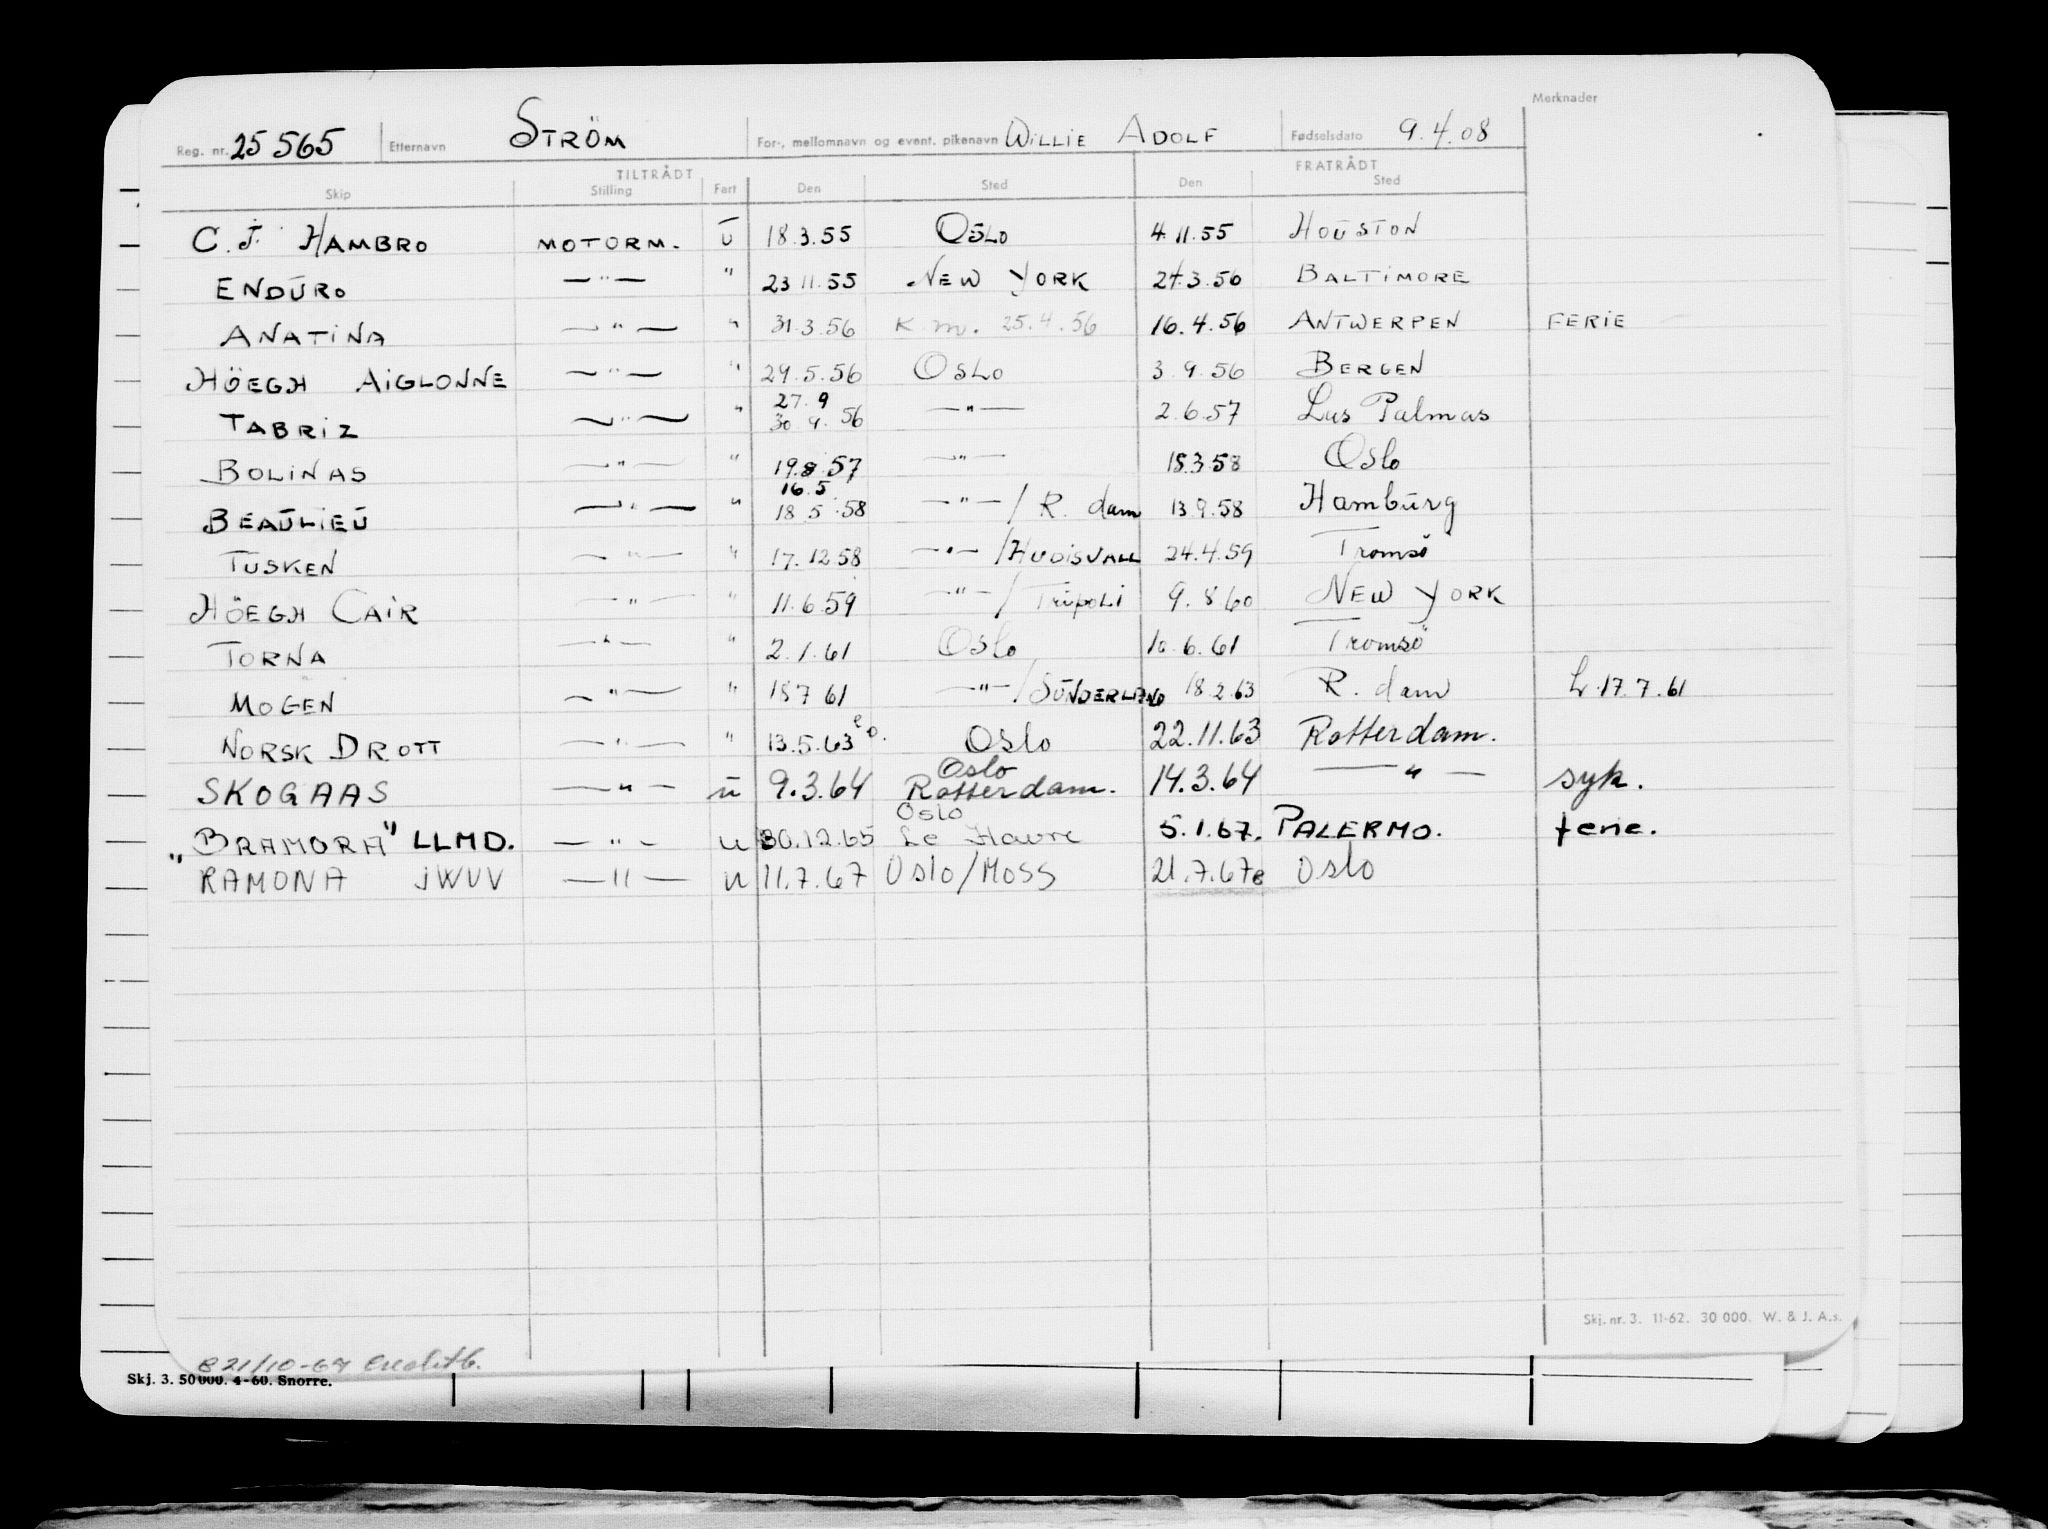 Merknader
Reg. nr. 25 565 Etternavn STRÖM For-, mellomnavn og event. pikenavn WILLIE ADOLF Fødselsdato 9.4.08
TILTRÅDT FRATRÅDT
Skip Stilling Fart Den Sted Den Sted
C. J. HAMBRO MOTORM. u 18.3.55 OSLO 4.11.55 HOUSTON
ENDURO —"— " 23 11.55 NEW YORK 24.3.56 BALTIMORE
ANATINA —"— " 31.3.56 K.m. 25.4.56 16.4.56 ANTWERPEN FERIE
HÖEGH AIGLONNE —"— " 29.5.56 OSLO 3.9.56 BERGEN
27.9
TABRIZ —"— " 30 9. 56 —"— 2.6.57 Las Palmas
BOLINAS —"— " 19.8.57 —"— 18.3.58 Oslo
16.5
BEAULIEU —"— " 18 5.58 —"—/R. dam 13.9.58 Hamburg
TUSKEN —"— " 17.12 58 —"—/HUDISVALL 24.4.59 Tromsö
HÖEGH CAIR —"— " 11.6.59 —"—/TRIPOLI 9.8.60 NEW YORK
TORNA —"— " 2.1.61 Oslo 10.6.61 Tromsö
MOGEN —"— " 18 7 61 —"—/SUNDERLAND 18.2.63 R. dam L.17.7.61
NORSK DROTT —"— " 13.5.63 Oslo 22.11.63 Rotterdam.
Oslo
SKOGAAS —"— u 9.3.64 Rotterdam. 14.3.64 —"— syk.
Oslo
"BRAMORA" LLMD. —"— u 30.12.65 Le Havre 5.1.67. PALERMO. ferie.
RAMONA JWUV —"— u 11.7.67 Oslo/Moss 21.7.67 Oslo
Skj. nr. 3. 11-62. 30 000. W. & J. A.s.
B 21/10-69
Skj. 3. 50 000. 4-60. Snorre.